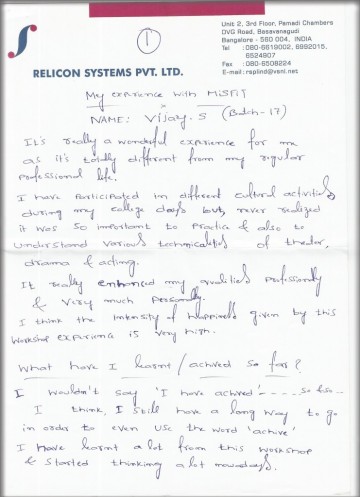 1
Unit 2, 3rd Floor, Pamadi Chambers
DVG Road, Basavanagudi
Bangalore - 560 004, INDIA
Tel : 080-6619002, 6992015,
6524907
Fax : 080-6508224
E-mail : rsplind@vsnl.net
RELICON SYSTEMS PVT. LTD.
My exprience with MISFIT
NAME: Vijay. S (Batch-17)
It's really a wonderful exprience for me
as it's totally different from my regular
professional life.
I have participated in different cultural activities
during my college days but, never realized
it was so important to practice & also to
understand various technicalities of theater,
drama & acting.
It really enhanced my qualities professionally
& very much personally.
I think the intensity of happiness given by this
workshop exprience is very high.
What have I learnt / achived so far?
I wouldn't say 'I have achived' - - - - so &so..
I think, I still have a long way to go
in order to even use the word 'achive'
I have learnt a lot from this workshop
& started thinking a lot nowadays.